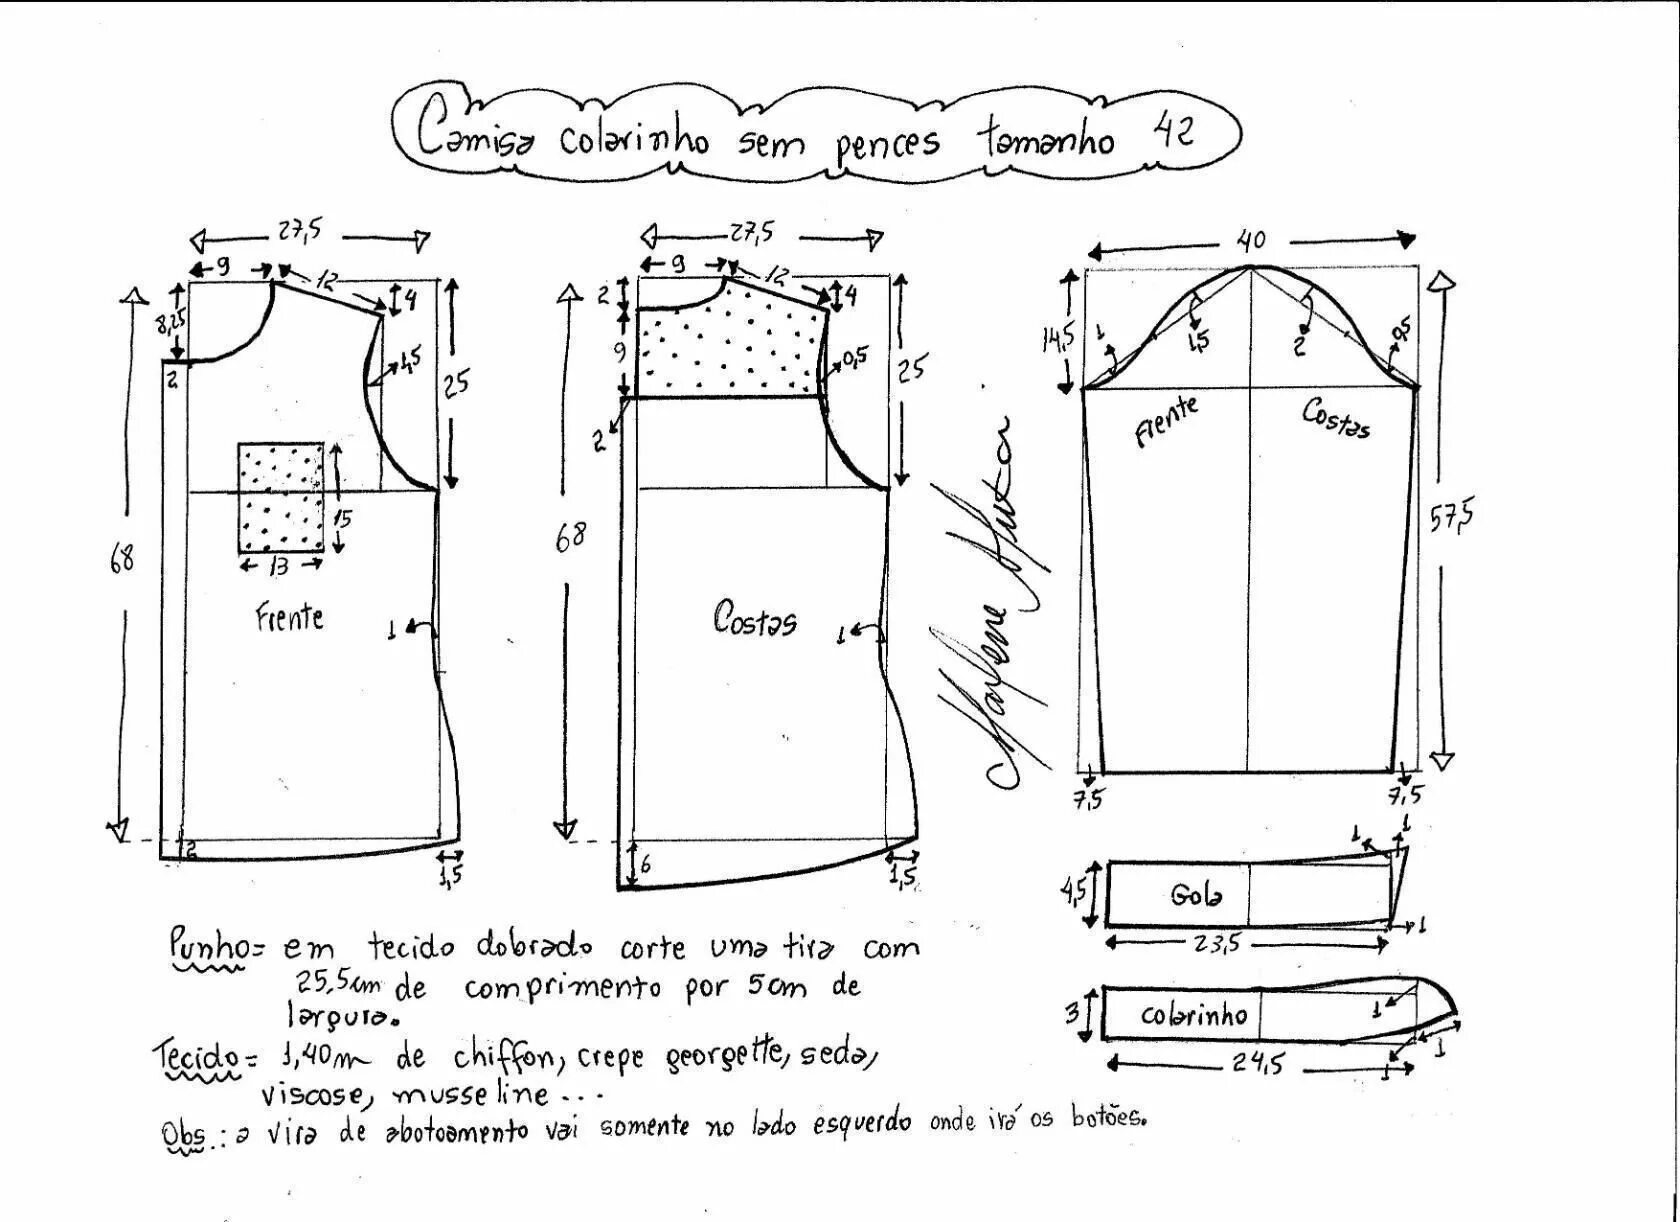 Camisa colarinho sem pences tamanho 42
27,5
9
12
4
8,25
2
1,5
25
15
13
68
Frente
1
2
1,5
27,5
9
12
2
4
9
0,5
25
2
68
Costas
1
6
1,5
Marlene Mukai
40
14,5
1
1,5
2
0,5
Frente
Costas
57,5
7,5
7,5
1
1
4,5
Gola
1
23,5
3
colarinho
1
1
24,5
1
Punho= em tecido dobrado corte uma tira com
25,5cm de comprimento por 5cm de
largura.
Tecido= 1,40m de chiffon, crepe georgette, seda,
viscose, musseline...
Obs.: a vira de abotoamento vai somente no lado esquerdo onde irá os botões.